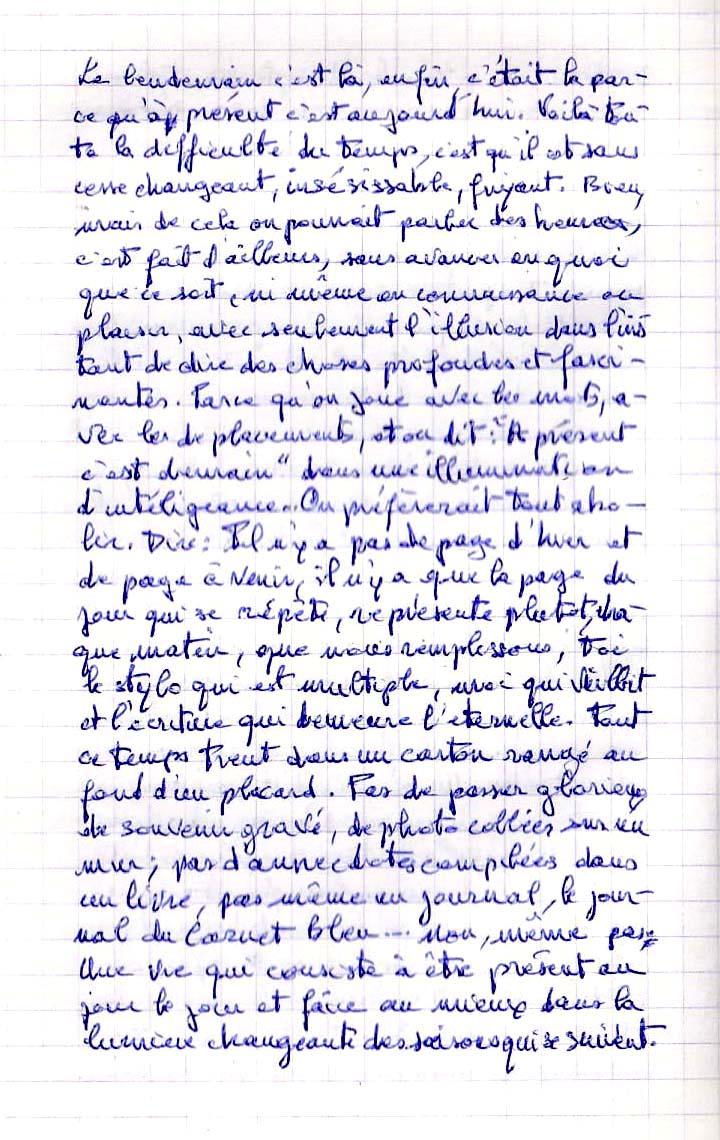 Le lendemain c'est là, enfin, c'était là par-
ce qu'à présent c'est aujourd'hui. Voilà tou-
te la difficulté du temps, c'est qu'il est sans
cesse changeant, insésissable, fuyant. Bien,
mais de cela on pourrait parler des heures,
c'est fait d'ailleurs, sans avancer en quoi
que ce soit, ni même en connaissance ou
plaisir, avec seulement l'illusion dans l'ins
tant de dire des choses profondes et fasci-
nantes. Parce qu'on joue avec les mots, a-
vec les déplacements, et on dit : "A présent
c'est demain" dans une illumination
d'intéligeance... On préfèrerait tout abo-
lir. Dire : Il n'y a pas de page d'hier et
de page à venir, il n'y a que la page du
jour qui se répète, représente plutôt, cha-
que matin, que nous remplissons, toi
le stylo qui est multiple, moi qui vieillit
et l'écriture qui demeure l'éternelle. Tout
ce temps tient dans un carton rangé au
fond d'un placard. Pas de passer glorieux
de souvenir gravé, de photo collées sur un
mur ; pas d'annecdotes compilées dans
un livre, pas même un journal, le jour-
nal du Carnet Bleu... Non, même pas.
Une vie qui consiste à être présent au
jour le jour et faire au mieux dans la
lumière changeante des saisons qui se suivent.